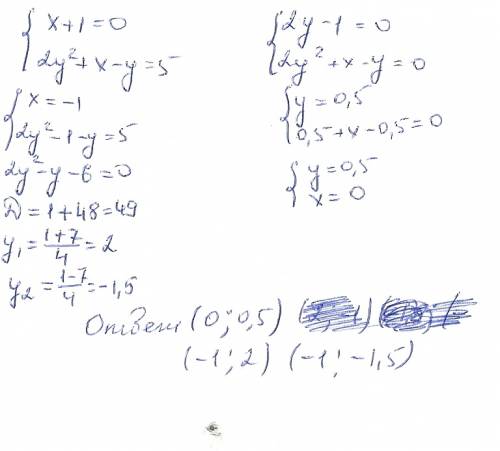 { x + 1 = 0
2y² + x - y = 5
{ x = -1
2y² - 1 - y = 5
2y² - y - 6 = 0
D = 1 + 48 = 49
y₁ = (1+7)/4 = 2
y₂ = (1-7)/4 = -1,5
{ 2y - 1 = 0
2y² + x - y = 0
{ y = 0,5
0,5 + x - 0,5 = 0
{ y = 0,5
x = 0
Ответ (0; 0,5)
(-1; 2) (-1; -1,5)